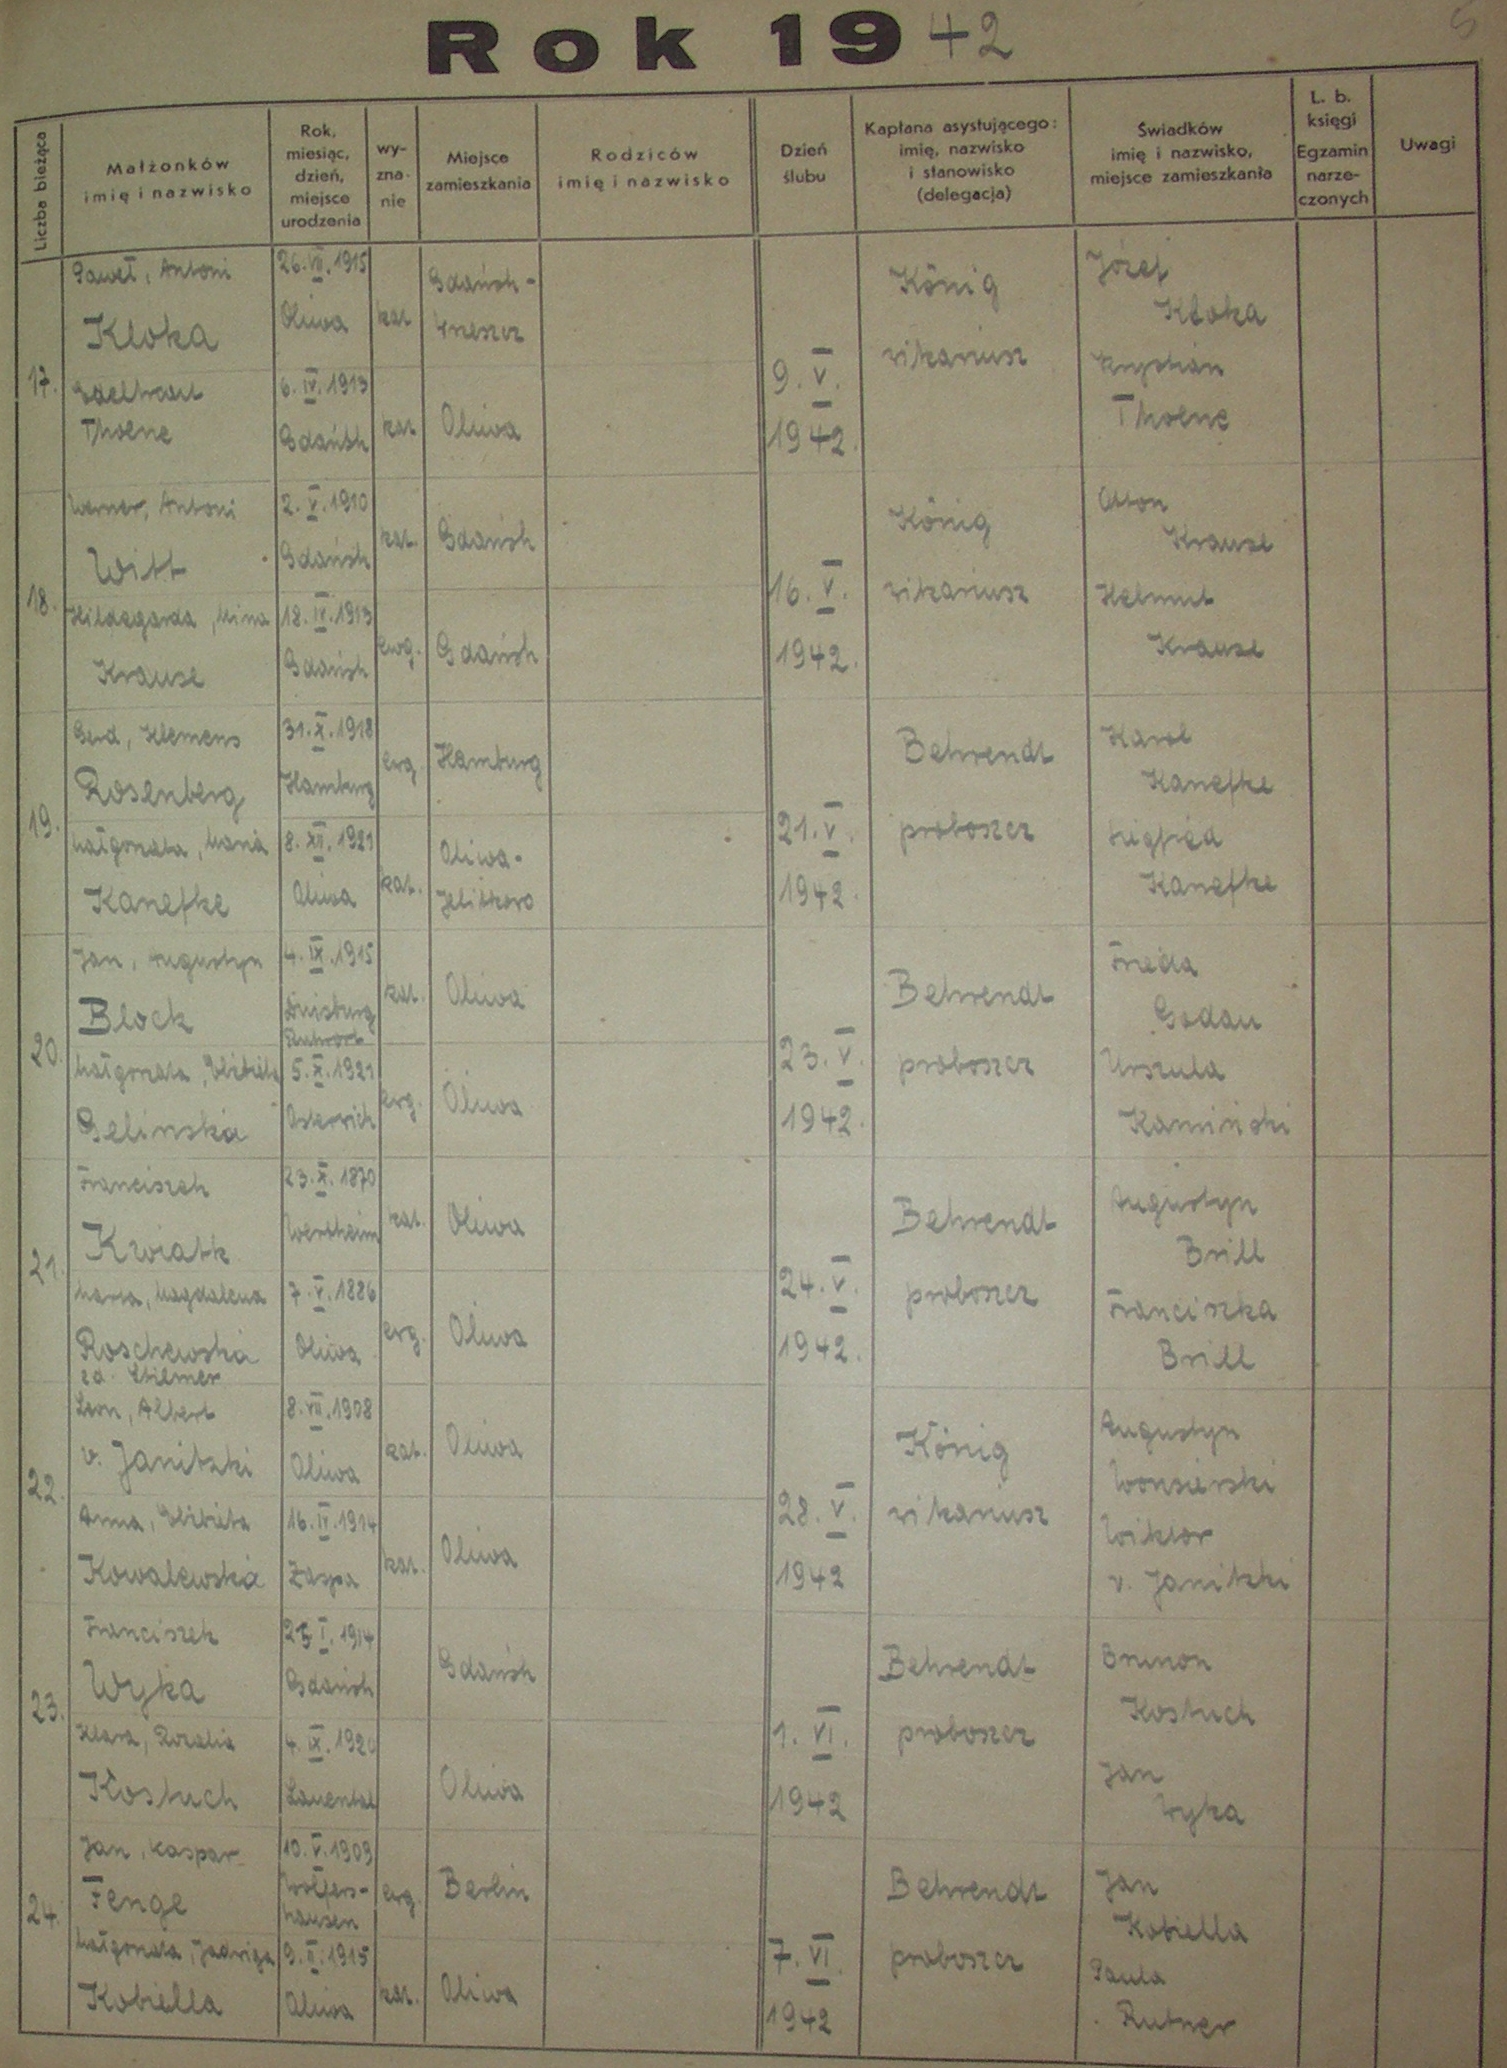 Rok 1942
5
Liczba bieżąca
Małżonków
imię i nazwisko
Rok,
miesiąc,
dzień,
miejsce
urodzenia
wy-
zna-
nie
Miejsce
zamieszkania
Rodziców
imię i nazwisko
Dzień
ślubu
Kapłana asystującego:
imię, nazwisko
i stanowisko
(delegacja)
Świadków
imię i nazwisko,
miejsce zamieszkania
L. b.
księgi
Egzamin
narze-
czonych
Uwagi
17.
Paweł, Antoni
Kloka
26.VII.1915
Oliwa
kat
Gdańsk-
Wrzeszcz
Edeltraut
Thoene
6.IV.1913
Gdańsk
kat
Oliwa
9.V.
1942.
König
wikariusz
Józef
Kloka
Krystian
Thoene
18.
Werner, Antoni
Witt
2.V.1910
Gdańsk
kat.
Gdańsk
Hildegarda, Mina
Krause
18.IV.1913
Gdańsk
ewg.
Gdańsk
16.V.
1942.
König
wikariusz
Otton
Krause
Helmut
Krause
19.
Gerd, Klemens
Rosenberg
31.X.1918
Hamburg
erg.
Hamburg
Małgorzata, Maria
Kanefke
8.XII.1921
Oliwa
kat.
Oliwa-
Jelitkowo
21.V.
1942.
Behrendt
proboszcz
Karol
Kanefke
Zigfried
Kanefke
20.
Jan, Augustyn
Block
4.IX.1915
Duisburg
Ruhrort
kat.
Oliwa
Małgorzata, Elżbieta
Gelinska
5.X.1921
Osterrich
erg.
Oliwa
23.V.
1942.
Behrendt
proboszcz
Frieda
Godau
Urszula
Kamiński
21.
Franciszek
Kwiatk
23.X.1870
Wertheim
kat.
Oliwa
Maria, Magdalena
Roschewska
zd. Stilmer
7.V.1886
Oliwa
erg.
Oliwa
24.V.
1942.
Behrendt
proboszcz
Augustyn
Brill
Franciszka
Brill
22.
Leon, Albert
v. Janitzki
8.VII.1908
Oliwa
kat.
Oliwa
Anna, Elżbieta
Kowalewska
16.IV.1914
Zaspa
kat.
Oliwa
28.V.
1942
König
wikariusz
Augustyn
Wonsierski
Wiktor
v. Janitzki
23.
Franciszek
Wyka
I.1914
Gdańsk
Gdańsk
Klara, Rozalia
Kostuch
4.IX.1920
Lauental
Oliwa
1.VI.
1942
Behrendt
proboszcz
Brunon
Kostuch
Jan
Wyka
24.
Jan, Kaspar
Fenge
10.V.1909
Wolfers-
hausen
erg.
Berlin
Małgorzata, Jadwiga
Kobiella
9.II.1915
Oliwa
kat.
Oliwa
7.VI.
1942
Behrendt
proboszcz
Jan
Kobiella
Paula
Rutner